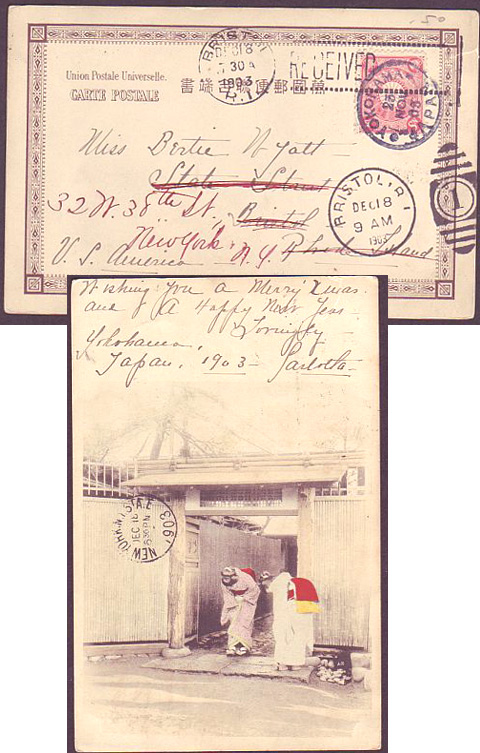 .50
BRISTOL
DEC 18
7 30A
1903
R.I.
RECEIVED
YOKOHAMA
26
NOV
03
JAPAN
Union Postale Universelle.
CARTE POSTALE
書端郵合聯便郵國萬
Miss Bertie Wyatt
State Street
32 W. 38th St.
Bristol
New York, N.Y.
Rhode Island
U. S. America
BRISTOL, R.I.
DEC 18
9 AM
1903
1
Wishing you a Merry Xmas
and A Happy New Year
Lovingly
Yokohama,
Japan, 1903
NEW YORK, N.Y. STA. E
DEC 18
1903